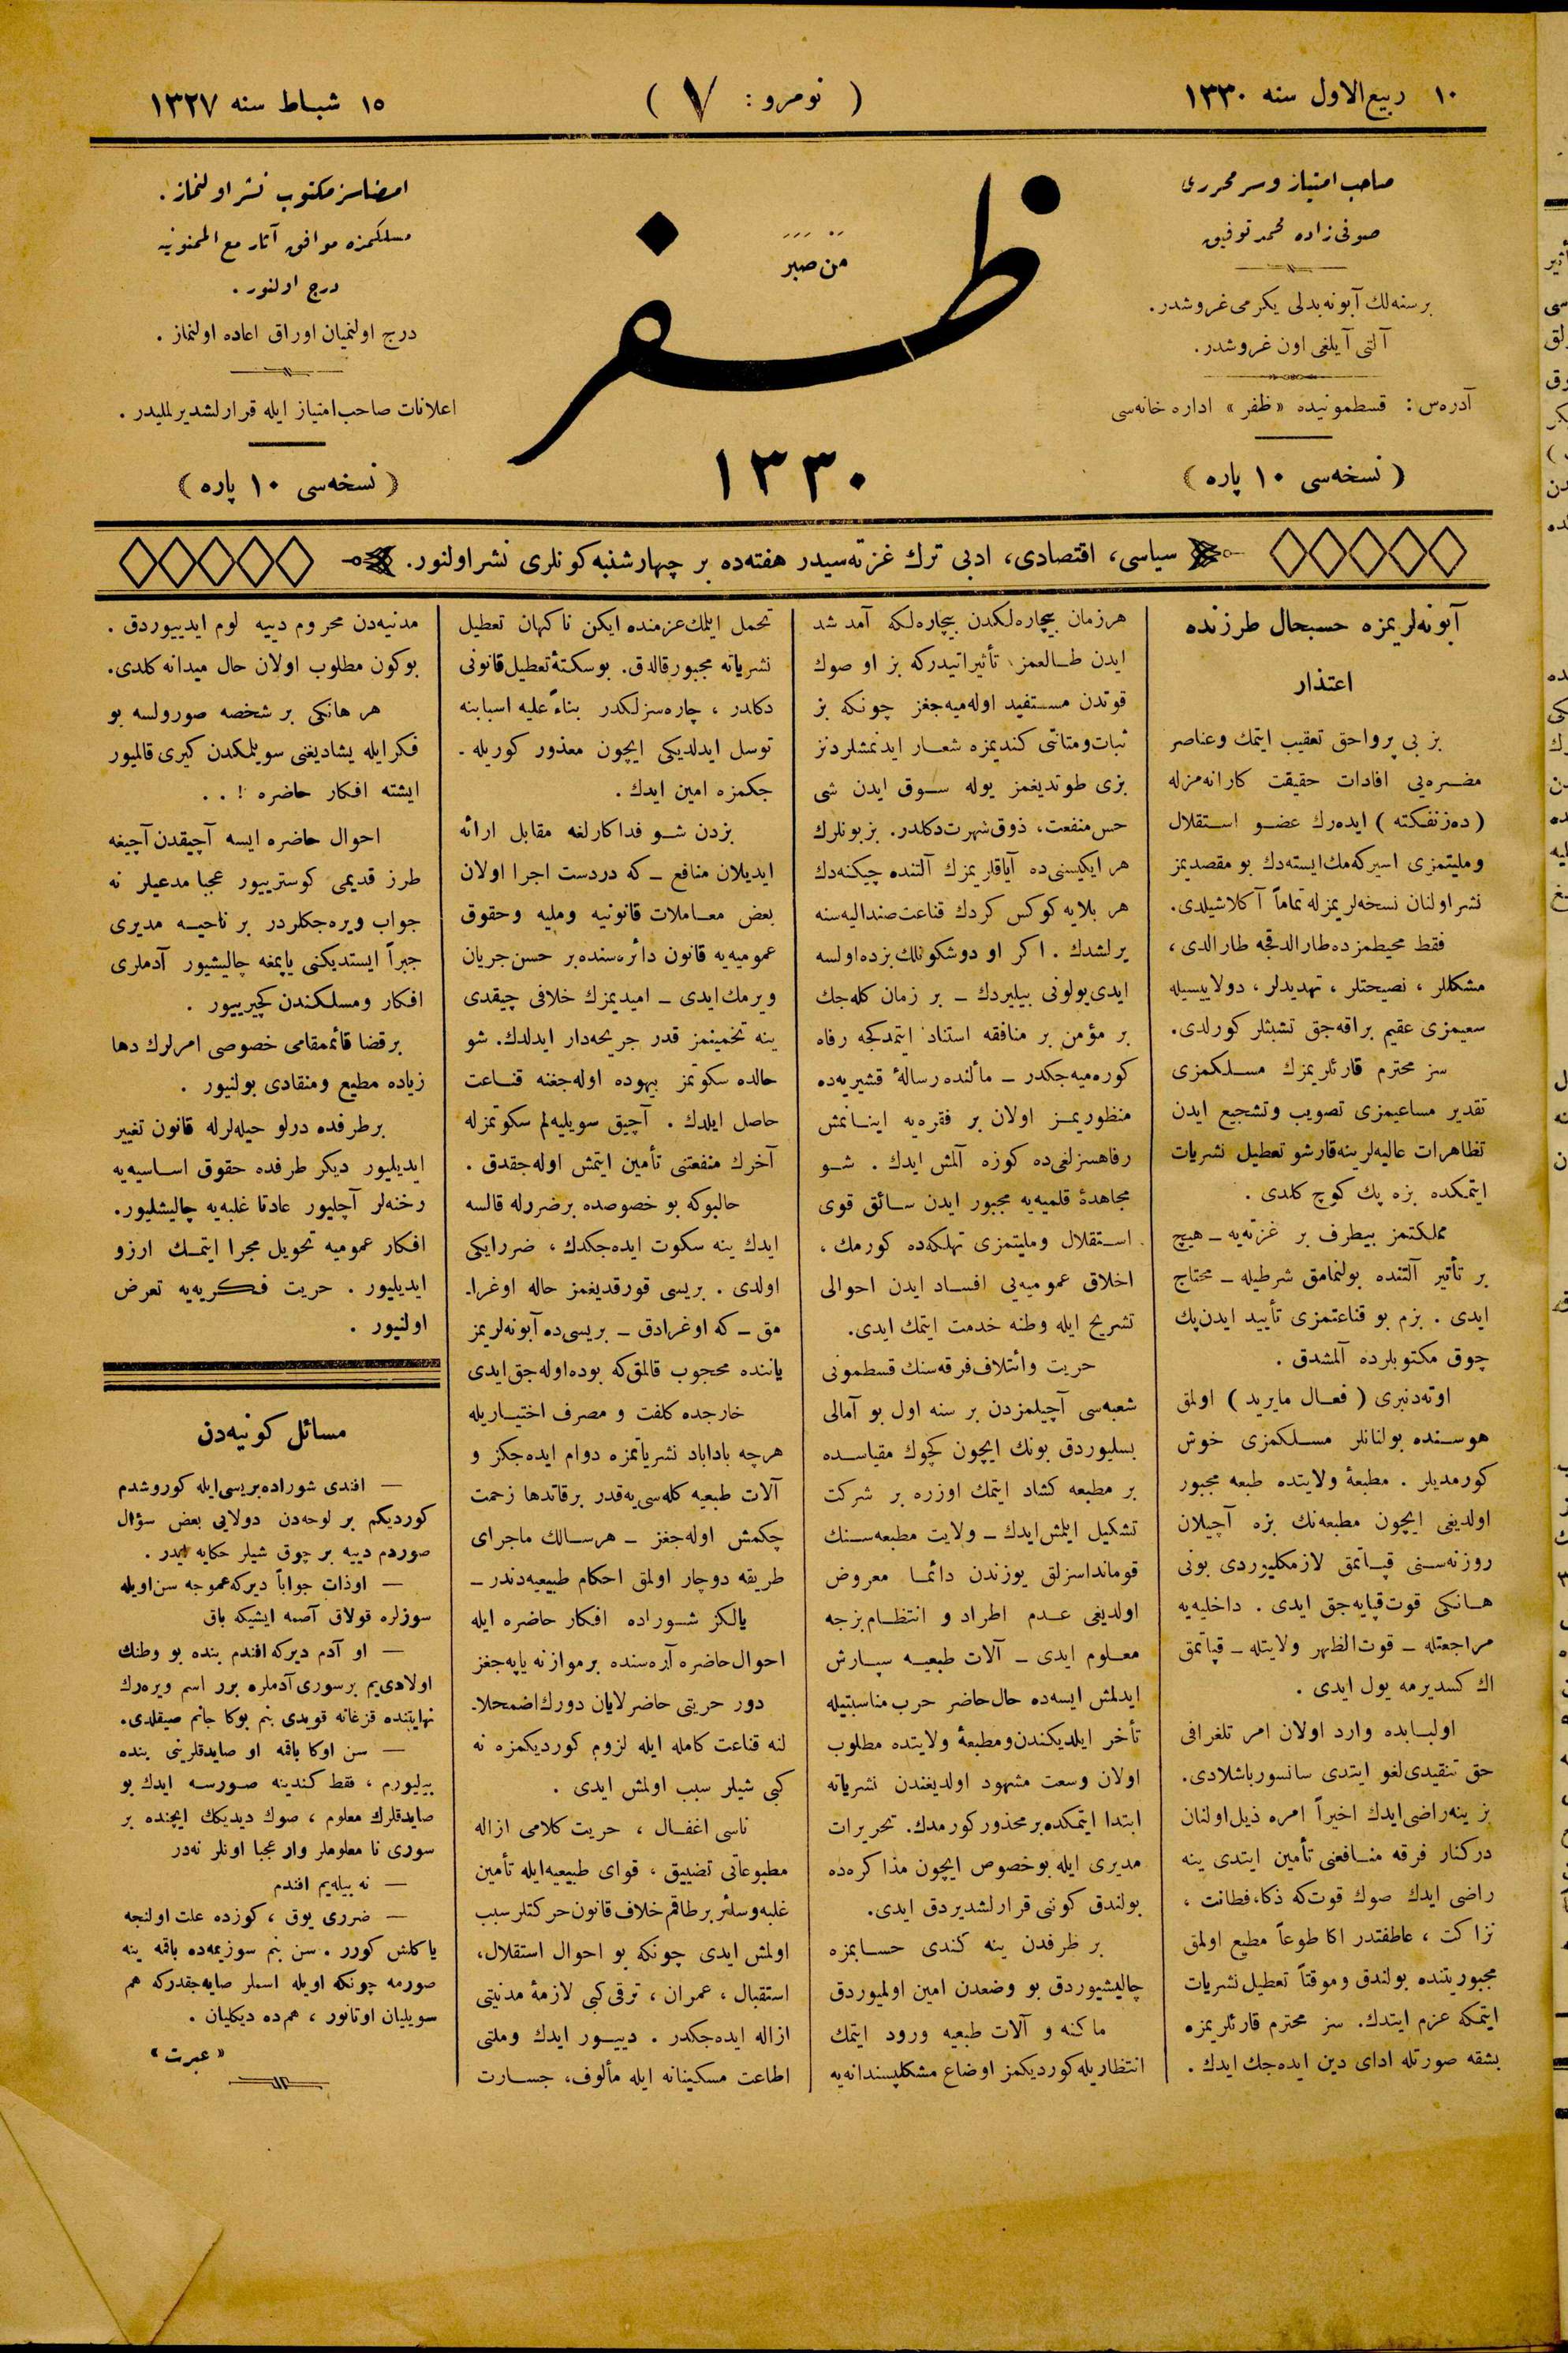 ١٠ ربیع‌الاول سنه ١٣٣٠
( نومرو : ٧ )
١٥ شباط سنه ١٣٢٧
صاحب امتیاز و سر محرری
صوفی زاده محمد توفیق
بر سنه‌لك آبونه بدلی یکرمی غروشدر.
آلتی آیلغی اون غروشدر.
آدره‌س : قسطمونیده «ظفر» اداره خانه‌سی
( نسخه‌سی ١٠ پاره )
من صبر
ظفر
١٣٣٠
امضاسز مکتوب نشر اولنماز .
مسلکمزه موافق آثار مع الممنونیه
درج اولنور .
درج اولنمیان اوراق اعاده اولنماز .
اعلانات صاحب امتیاز ایله قرارلشدیرلملیدر .
( نسخه‌سی ١٠ پاره )
سیاسی، اقتصادی، ادبی ترك غزته‌سیدر هفته‌ده بر چهارشنبه کونلری نشر اولنور.
آبونه‌لریمزه حسبحال طرزنده
اعتذار
بز بی پروا حق تعقیب ایتمك وعناصر
مضره‌یی افادات حقیقت کارانه‌مزله
( ده‌زنفکته ) ایده‌رك عضو استقلال
وملیتمزی اسیرکه‌مك ایسته‌دك بو مقصدیمز
نشر اولنان نسخه‌لریمزله تماماً آکلاشیلدی.
فقط محیطمزده طارالدقجه طارالدی ،
مشکللر ، نصیحتلر ، تهدیدلر ، دولاییسیله
سعیمزی عقیم براقه‌جق تشبثلر کورلدی.
سز محترم قارئلریمزك مسلکمزی
تقدیر مساعیمزی تصویب وتشجیع ایدن
تظاهرات عالیه‌لرینه قارشو تعطیل نشریات
ایتمکده بزه پك کوچ کلدی .
مملکتمز بیطرف بر غزته‌یه ـ هیچ
بر تأثیر آلتنده بولنمامق شرطیله ـ محتاج
ایدی . بزم بو قناعتمزی تأیید ایدن پك
چوق مکتوبلرده آلمشدق .
اوته‌دنبری ( فعال مایرید ) اولمق
هوسنده بولنانلر مسلکمزی خوش
کورمدیلر . مطبعهٔ ولایتده طبعه مجبور
اولدیغی ایچون مطبعه‌نك بزه آچیلان
روزنه‌سنی قپاتمق لازمکلیوردی بونی
هانکی قوت قپایه‌جق ایدی . داخلیه‌یه
مراجعتله ـ قوت الظهر ولایتله ـ قپاتمق
اك کسدیرمه یول ایدی .
اولبابده وارد اولان امر تلغرافی
حق تنقیدی لغو ایتدی سانسور باشلادی.
بز ینه راضی ایدك اخیراً امره ذیل اولنان
درکنار فرقه منافعنی تأمین ایتدی ینه
راضی ایدك صوك قوت که ذکا، فطانت ،
نزاکت ، عاطفتدر اکا طوعاً مطیع اولمق
مجبوریتنده بولندق وموقتاً تعطیل نشریات
ایتمکه عزم ایتدك. سز محترم قارئلریمزه
بشقه صورتله ادای دین ایده‌جك ایدك .
هر زمان بیچاره‌لکدن بیچاره‌لکه آمد شد
ایدن طالعمز، تأثیراتیدرکه بز او صوك
قوتدن مستفید اوله‌میه‌جغز چونکه بز
ثبات ومتانتی کندیمزه شعار ایدنمشلردنز
بزی طوتدیغمز یوله سوق ایدن شی
حس منفعت، ذوق شهرت دکلدر. بز بونلرك
هر ایکیسنی ده آیاقلریمزك آلتنده چیکنه‌دك
هر بلایه کوکس کردك قناعت صندالیه‌سنه
یرلشدك . اکر او دوشکونلك بزده اولسه
ایدی یولونی بیلیردك ـ بر زمان کله‌جك
بر مؤمن بر منافقه استناد ایتمدکجه رفاه
کوره‌میه‌جکدر ـ مألنده رسالهٔ قشیریه‌ده
منظوریمز اولان بر فقره‌یه اینانمش
رفاهسزلغی ده کوزه آلمش ایدك . شو
مجاهدهٔ قلمیه‌یه مجبور ایدن سائق قوی
استقلال وملیتمزی تهلکه‌ده کورمك ،
اخلاق عمومیه‌یی افساد ایدن احوالی
تشریح ایله وطنه خدمت ایتمك ایدی.
حریت وائتلاف فرقه‌سنك قسطمونی
شعبه‌سی آچیلمزدن بر سنه اول بو آمالی
بسلیوردق بونك ایچون کچوك مقیاسده
بر مطبعه کشاد ایتمك اوزره بر شرکت
تشکیل ایلمش ایدك ـ ولایت مطبعه‌سنك
قومانداسزلق یوزندن دائما معروض
اولدیغی عدم اطراد و انتظام بزجه
معلوم ایدی ـ آلات طبعیه سپارش
ایدلمش ایسه‌ده حال حاضر حرب مناسبتیله
تأخر ایلدیکندن ومطبعهٔ ولایتده مطلوب
اولان وسعت مشهود اولدیغندن نشریاته
ابتدا ایتمکده بر محذور کورمدك. تحریرات
مدیری ایله بو خصوص ایچون مذاکره‌ده
بولندق کوننی قرارلشدیردق ایدی.
بر طرفدن ینه کندی حسابمزه
چالیشیوردق بو وضعدن امین اولمیوردق
ماکنه و آلات طبعیه ورود ایتمك
انتظاریله کوردیکمز اوضاع مشکلپسندانه‌یه
تحمل ایلمك عزمنده ایکن ناکهان تعطیل
نشریاته مجبور قالدق. بو سکتهٔ تعطیل قانونی
دکلدر ، چاره‌سزلکدر بناءً علیه اسبابنه
توسل ایدلدیکی ایچون معذور کوریله ـ
جکمزه امین ایدك .
بزدن شو فداکارلغه مقابل ارائه
ایدیلان منافع ـ که دردست اجرا اولان
بعض معاملات قانونیه وملیه وحقوق
عمومیه‌یه قانون دائره‌سنده بر حسن جریان
ویرمك ایدی ـ امیدیمزك خلافی چیقدی
ینه تخمینمز قدر جریحه‌دار ایدلدك. شو
حالده سکوتمز بیهوده اوله‌جغنه قناعت
حاصل ایلدك . آچیق سویلیه‌لم سکوتمزله
آخرك منفعتنی تأمین ایتمش اوله‌جقدق .
حالبوکه بو خصوصده بر ضررله قالسه
ایدك ینه سکوت ایده‌جکدك ، ضرر ایکی
اولدی . بریسی قورقدیغمز حاله اوغرا ـ
مق ـ که اوغرادق ـ بریسی ده آبونه‌لریمز
یاننده محجوب قالمق که بوده اوله‌جق ایدی
خارجده کلفت و مصرف اختیاریله
هرچه باداباد نشریاتمزه دوام ایده‌جکز و
آلات طبعیه کله‌سی یه قدر بر قاتدها زحمت
چکمش اوله‌جغز ـ هر سالك ماجرای
طریقه دوچار اولمق احکام طبیعیه‌دندر ـ
یالکز شوراده افکار حاضره ایله
احوال حاضره آره‌سنده بر موازنه یاپه‌جغز
دور حریتی حاضرلایان دورك اضمحلا ـ
لنه قناعت کامله ایله لزوم کوردیکمزه نه
کبی شیلر سبب اولمش ایدی .
ناسی اغفال ، حریت کلامی ازاله
مطبوعاتی تضییق ، قوای طبیعیه ایله تأمین
غلبه وسائر بر طاقم خلاف قانون حرکتلر سبب
اولمش ایدی چونکه بو احوال استقلال،
استقبال ، عمران ، ترقی کبی لازمهٔ مدنیتی
ازاله ایده‌جکدر . دییور ایدك وملتی
اطاعت مسکینانه ایله مألوف، جسارت
مدنیه‌دن محروم دییه لوم ایدییوردق .
بوکون مطلوب اولان حال میدانه کلدی.
هر هانکی بر شخصه صورولسه بو
فکر ایله یشادیغنی سویلمکدن کیری قالمیور
ایشته افکار حاضره ! . .
احوال حاضره ایسه آچیقدن آچیغه
طرز قدیمی کوسترییور عجبا مدعیلر نه
جواب ویره‌جکلردر بر ناحیه مدیری
جبراً ایستدیکنی یاپمغه چالیشیور آدملری
افکار ومسلکندن کچیرییور .
بر قضا قائممقامی خصوصی امرلرك دها
زیاده مطیع ومنقادی بولنیور .
بر طرفده درلو حیله‌لرله قانون تغییر
ایدیلیور دیکر طرفده حقوق اساسیه‌یه
رخنه‌لر آچلیور عادتا غلبه‌یه چالیشلیور.
افکار عمومیه تحویل مجرا ایتمك ارزو
ایدیلیور . حریت فکریه‌یه تعرض
اولنیور .
مسائل کونیه‌دن
— افندی شوراده بریسی ایله کوروشدم
کوردیکم بر لوحه‌دن دولایی بعض سؤال
صوردم دییه بر چوق شیلر حکایه ایدر .
— اوذات جواباً دیرکه عموجه سن اویله
سوزلره قولاق آصمه ایشیکه باق
— او آدم دیرکه افندم بنده بو وطنك
اولادی‌یم بر سوری آدملره برر اسم ویره‌رك
نهایتنده قزغانه قویدی بنم بوکا جانم صیقلدی.
— سن اوکا باقمه او صایدقلرینی بنده
بیلیورم ، فقط کندینه صورسه ایدك بو
صایدقلرك معلوم ، صوك دیدیکك ایچنده بر
سوری نا معلوملر وار عجبا اونلر نه‌در
— نه بیله‌یم افندم
— ضرری یوق ، کوزده علت اولنجه
یاکلش کورر . سن بنم سوزیمه‌ده باقمه ینه
صورمه چونکه اویله اسملر صایه‌جقدرکه هم
سویلیان اوتانور ، هم‌ده دیکلیان .
« عبرت »